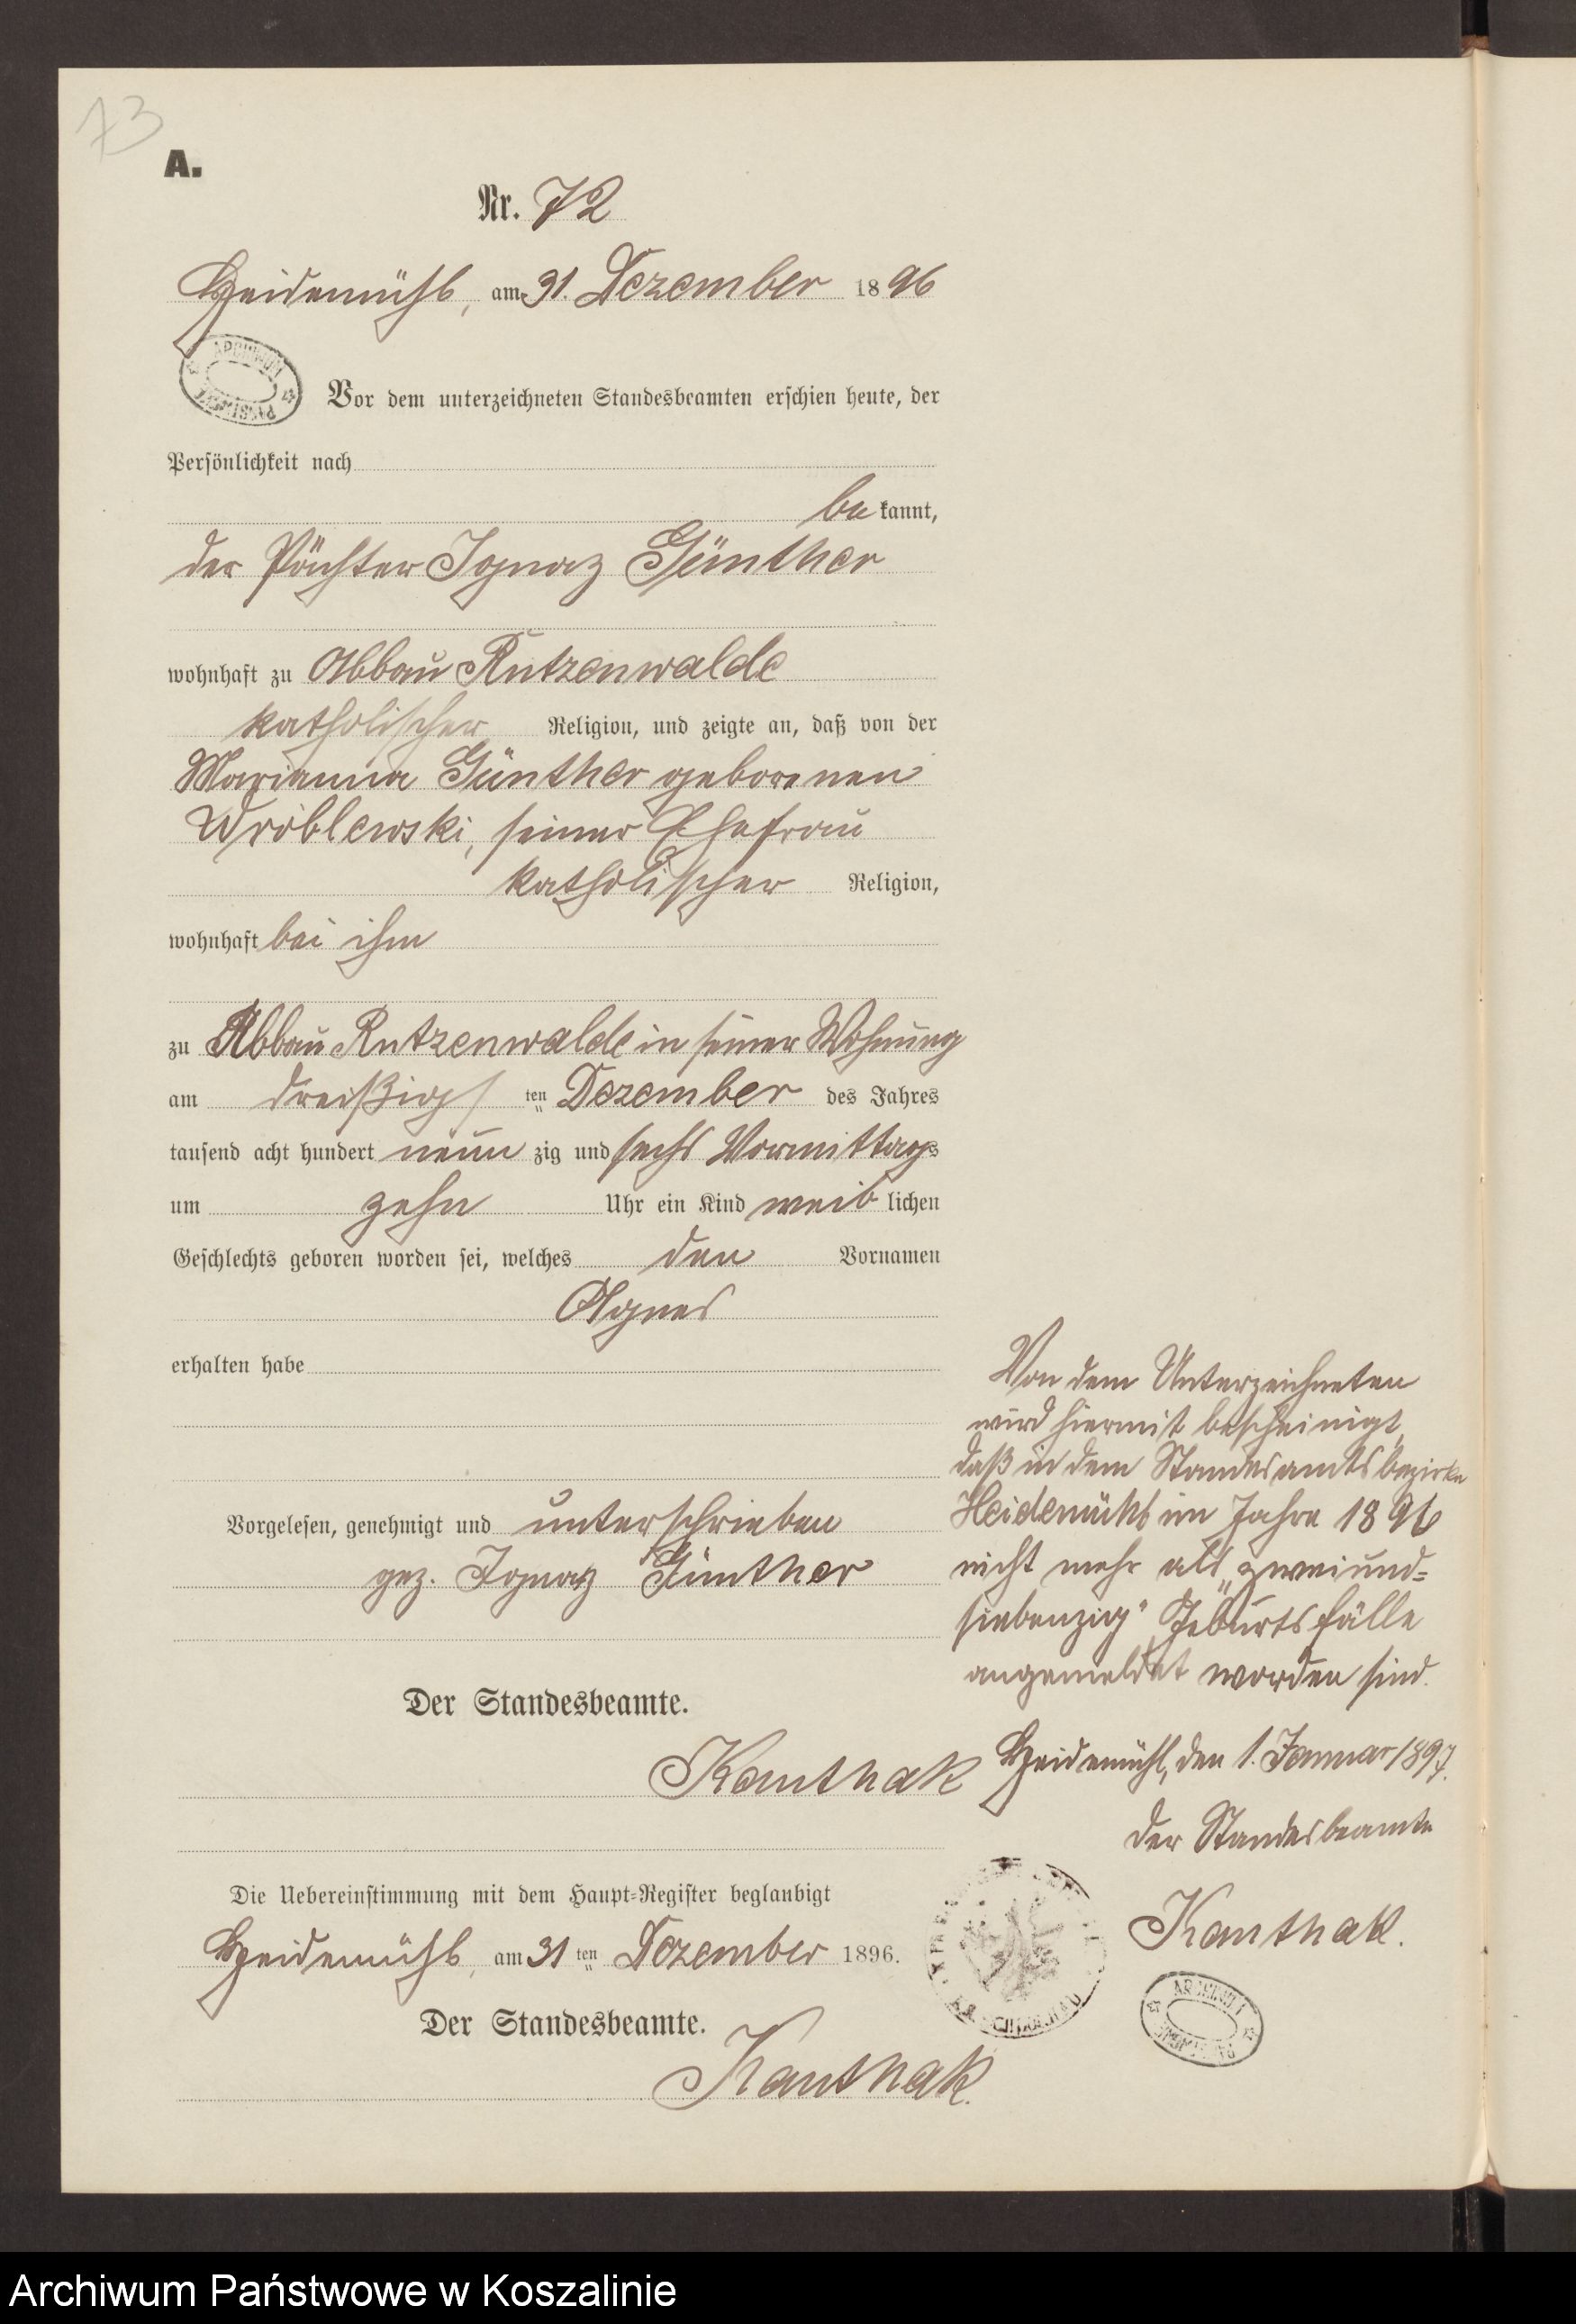 73
A.
Nr. 72
Heidemühl, am 31. Dezember 1896
ARCHIWUM
Vor dem unterzeichneten Standesbeamten erschien heute, der
Persönlichkeit nach
bekannt,
der Pächter Ignaz Günther
wohnhaft zu Abbau Rutzenwalde
katholischer Religion, und zeigte an, daß von der
Marianna Günther geborenen
Wróblewski, seiner Ehefrau
katholischer Religion,
wohnhaft bei ihm
zu Abbau Rutzenwalde in seiner Wohnung
am dreißigsten Dezember des Jahres
tausend acht hundert neunzig und sechs Vormittags
um zehn Uhr ein Kind weiblichen
Geschlechts geboren worden sei, welches den Vornamen
Agnes
erhalten habe
Vorgelesen, genehmigt und unterschrieben
gez. Ignaz Günther
Der Standesbeamte.
Kanthak
Die Uebereinstimmung mit dem Haupt-Register beglaubigt
Heidemühl, am 31ten Dezember 1896.
Der Standesbeamte.
Kanthak.
Von dem Unterzeichneten
wird hiermit bescheinigt,
daß in dem Standesamtsbezirke
Heidemühl im Jahre 1896
nicht mehr als „zweiund-
siebenzig“ Geburtsfälle
angemeldet worden sind.
Heidemühl, den 1. Januar 1897.
Der Standesbeamte
Kanthak.
ARCHIWUM
Archiwum Państwowe w Koszalinie